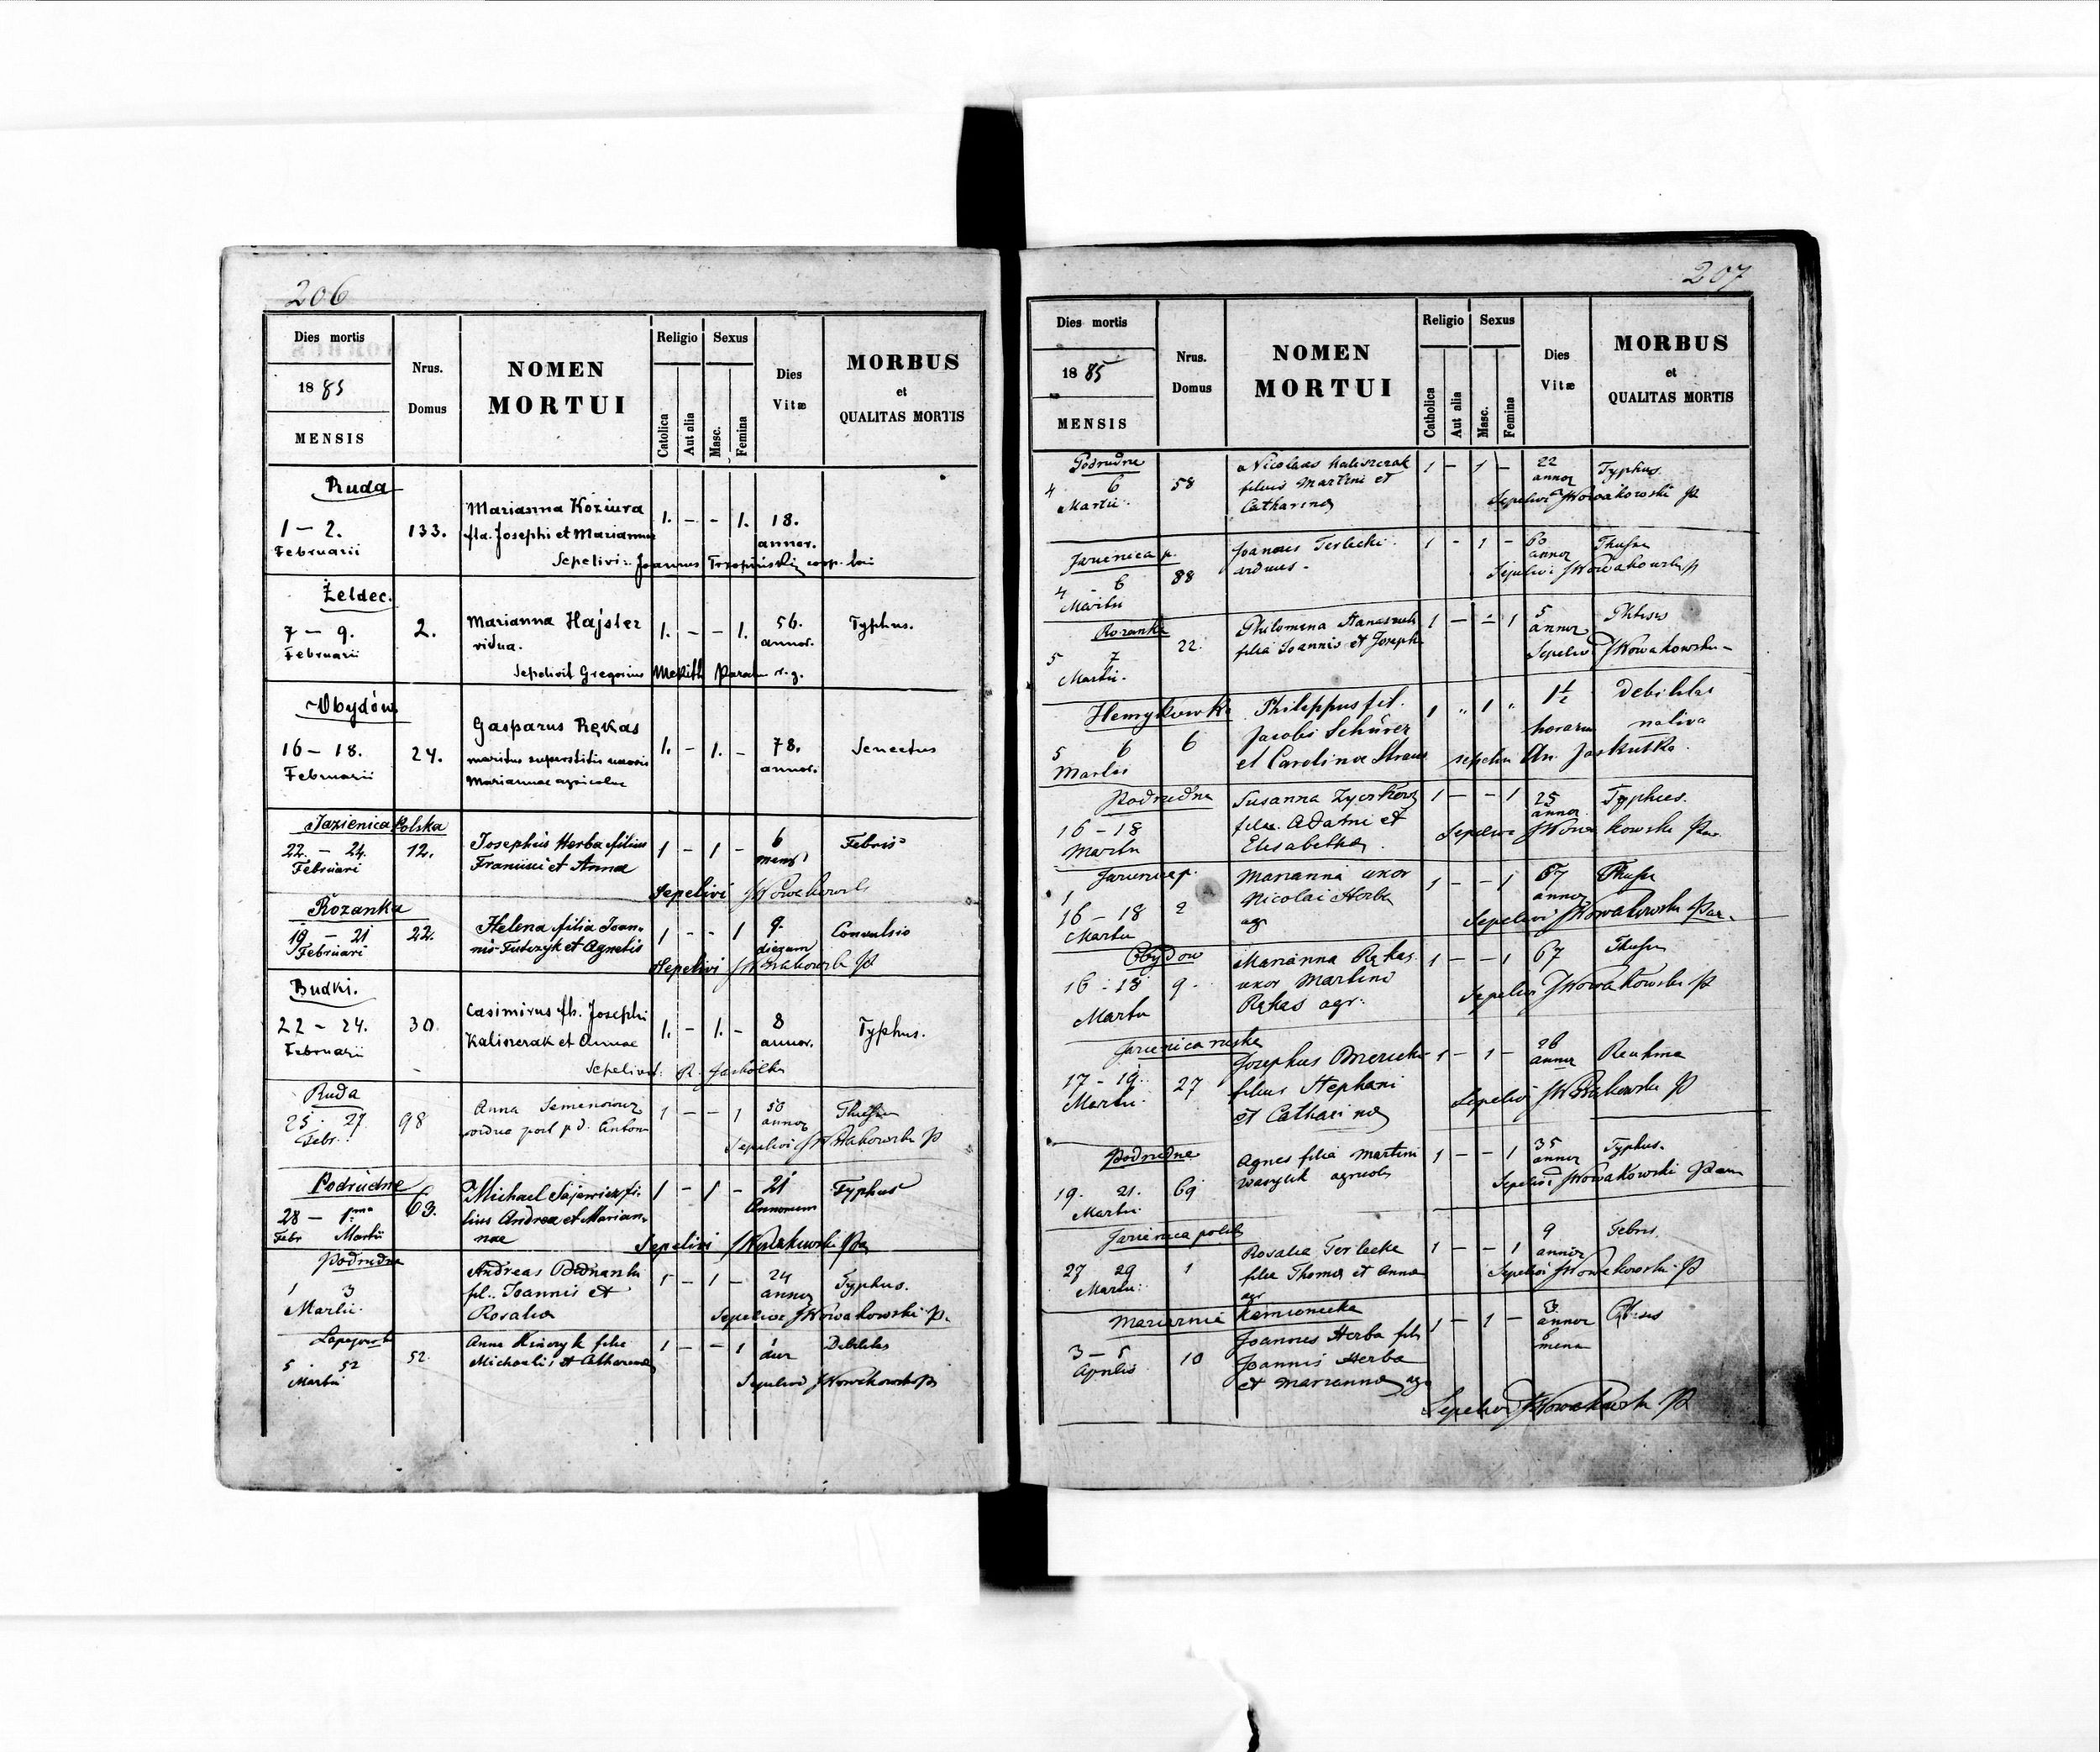 206
Dies mortis
1885
MENSIS
Nrus.
Domus
NOMEN
MORTUI
Religio
Catolica
Aut alia
Sexus
Masc.
Femina
Dies
Vitæ
MORBUS
et
QUALITAS MORTIS
Ruda
1 – 2.
Februarii
133.
Marianna Koziura
fla. Josephi et Mariannae
1. – – 1.
18.
annor.
Sepelivi: Joannes coop. loci
Żeldec.
7 – 9.
Februarii
2.
Marianna Hajsler
vidua.
1. – – 1.
56.
annor.
Typhus.
Sepelivit Gregorius Parochus r. g.
Obydów
16 – 18.
Februarii
24.
Gasparus Rękas
maritus superstitis uxoris
Mariannae agricolae
1. – 1. –
78.
annor.
Senectus
Jazienica Polska
22. – 24.
Februari
12.
Josephus Herba filius
Francisci et Anna
1 – 1 –
6
mens
Febris
Sepelivi JNowakowski
Rozanka
19 – 21
Februari
22.
Helena filia Joan-
nis Futczyk et Agnetis
1 – – 1
9.
dierum
Convulsio
Sepelivi JNowakowski P
Budki.
22 – 24.
Februarii
30.
Casimirus fil. Josephi
Kaliszczak et Annae
1. – 1. –
8
annor.
Typhus.
Sepelivit:
Ruda
25 . 27.
Febr.
98
Anna
vidua post p d. Anton
1 – – 1
50
annor
Sepelivi JNowakowski P
Podrudne
28 – 1ma
Febr Martii
63.
Michael Sajewicz fi-
lius Andrea et Marian-
nae
1 – 1 –
21
Annorum
Typhus
Sepelivi JNowakowski
Podrudne
1 3
Martii.
Andreas
fil. Joannis et
Rosalia
1 – 1 –
24
annor
Typhus.
Sepelivi JNowakowski P.
5 . 52
Martii
52.
Anna filia
Michaelis et Catharina
1 – – 1
1
Debilitas
Sepelivi JNowakowski P
207
Dies mortis
1885
MENSIS
Nrus.
Domus
NOMEN
MORTUI
Religio
Catholica
Aut alia
Sexus
Masc.
Femina
Dies
Vitæ
MORBUS
et
QUALITAS MORTIS
Podrudne
4 6
Martii.
58
Nicolaus Kaliszczak
filius Martini et
Catharina
1 – 1 –
22
annor
Typhus.
Sepelivi JNowakowski P
Jazienica p.
4 6
Martii
88
Joannes Terlecki.
viduus.
1 – 1 –
60
annor
Sepelivi JNowakowski P
Rozanka
5 7
Martii.
22.
Philomena
filia Joannis et Joseph
1 – – 1
5
annor
Phtisis
Sepelivi JNowakowski
Henrykowka
5 6
Martii
6
Philippus fil.
Jacobi Schürer
et Carolinae Straus
1 " 1 "
1½
horarum
Debilitas
nativa
sepelivi An. Jaskulski.
Podrudne
16 – 18
Martii
Susanna
filia Adami et
Elisabetha.
1 – – 1
25
annor
Typhus.
Sepelivi JNowakowski Par.
Jazienica p.
16 – 18
Martii
2
Marianna uxor
Nicolai Herba
agr
1 – – 1
67
annor
Sepelivi JNowakowski Par.
Obydow
16 . 18
Martii
9.
Marianna Rękas
uxor Martini
Rękas agr.
1 – – 1
67
Sepelivi JNowakowski P
Jazienica ruska
17 – 19.
Martii.
27
Josephus
filius Stephani
et Catharina
1 – 1 –
26
annor
Reuhma
Sepelivi JNowakowski P
Podrudne
19. 21.
Martii
69
Agnes filia Martini
agricola
1 – – 1
35
annor
Typhus.
Sepelivi JNowakowski Par
Jazienica polska
27 29
Martii.
1
Rosalia Terlecka
filia Thoma et Anna
agr
1 – – 1
9
annor
Febris.
Sepelivi JNowakowski P
Kamionecka
3 – 5
Aprilis
10
Joannes Herba fil
Joannis Herba
et Marianna agr
1 – 1 –
3
annor
6
mens
Sepelivi JNowakowski P